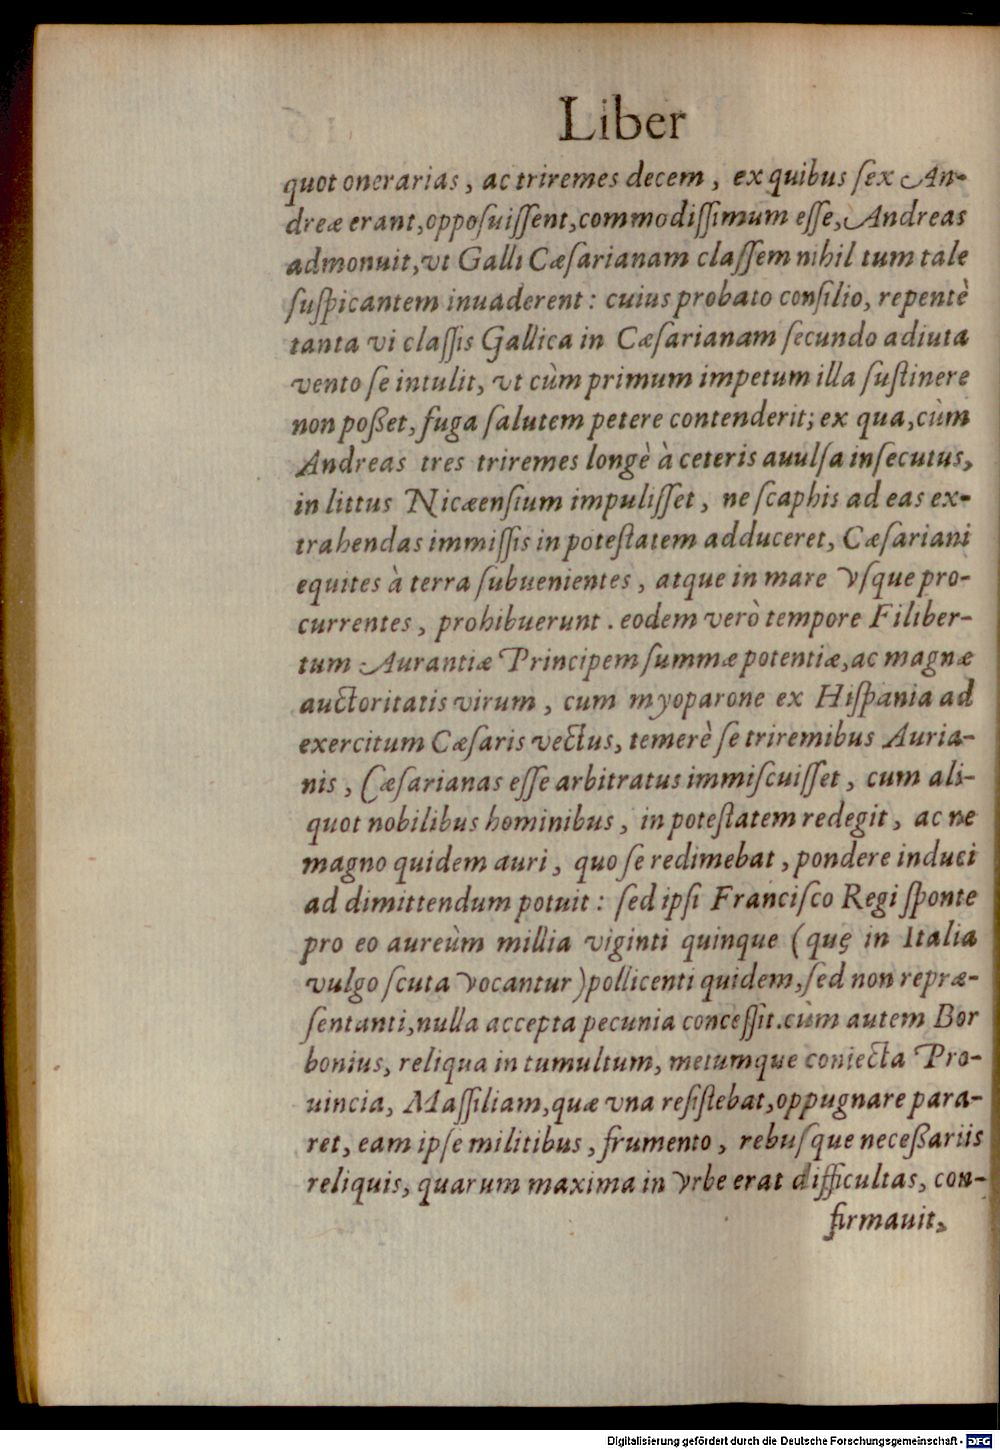 Liber
quot onerarias, ac triremes decem, ex quibus ſex An-
dreæ erant, oppoſuiſſent, commodiſſimum eſſe, Andreas
admonuit, vt Galli Cæſarianam claſſem nihil tum tale
ſuſpicantem inuaderent: cuius probato conſilio, repentè
tanta vi claſſis Gallica in Cæſarianam ſecundo adiuta
vento ſe intulit, vt cùm primum impetum illa ſuſtinere
non poßet, fuga ſalutem petere contenderit; ex qua, cùm
Andreas tres triremes longè à ceteris auulſa inſecutus,
in littus Nicæenſium impuliſſet, ne ſcaphis ad eas ex-
trahendas immiſſis in poteſtatem adduceret, Cæſariani
equites à terra ſubuenientes, atque in mare vſque pro-
currentes, prohibuerunt. eodem verò tempore Filiber-
tum Aurantiæ Principem ſummæ potentiæ, ac magnæ
auctoritatis virum, cum myoparone ex Hiſpania ad
exercitum Cæſaris vectus, temerè ſe triremibus Auria-
nis, Cæſarianas eſſe arbitratus immiſcuiſſet, cum ali-
quot nobilibus hominibus, in poteſtatem redegit, ac ne
magno quidem auri, quo ſe redimebat, pondere induci
ad dimittendum potuit: ſed ipſi Franciſco Regi ſponte
pro eo aureûm millia viginti quinque (quę in Italia
vulgo ſcuta vocantur) pollicenti quidem, ſed non repræ-
ſentanti, nulla accepta pecunia conceſſit. cùm autem Bor
bonius, reliqua in tumultum, metumque coniecta Pro-
uincia, Maſſiliam, quæ vna reſiſtebat, oppugnare para-
ret, eam ipſe militibus, frumento, rebuſque neceßariis
reliquis, quarum maxima in vrbe erat difficultas, con-
firmauit,
Digitalisierung gefördert durch die Deutsche Forschungsgemeinschaft - DFG